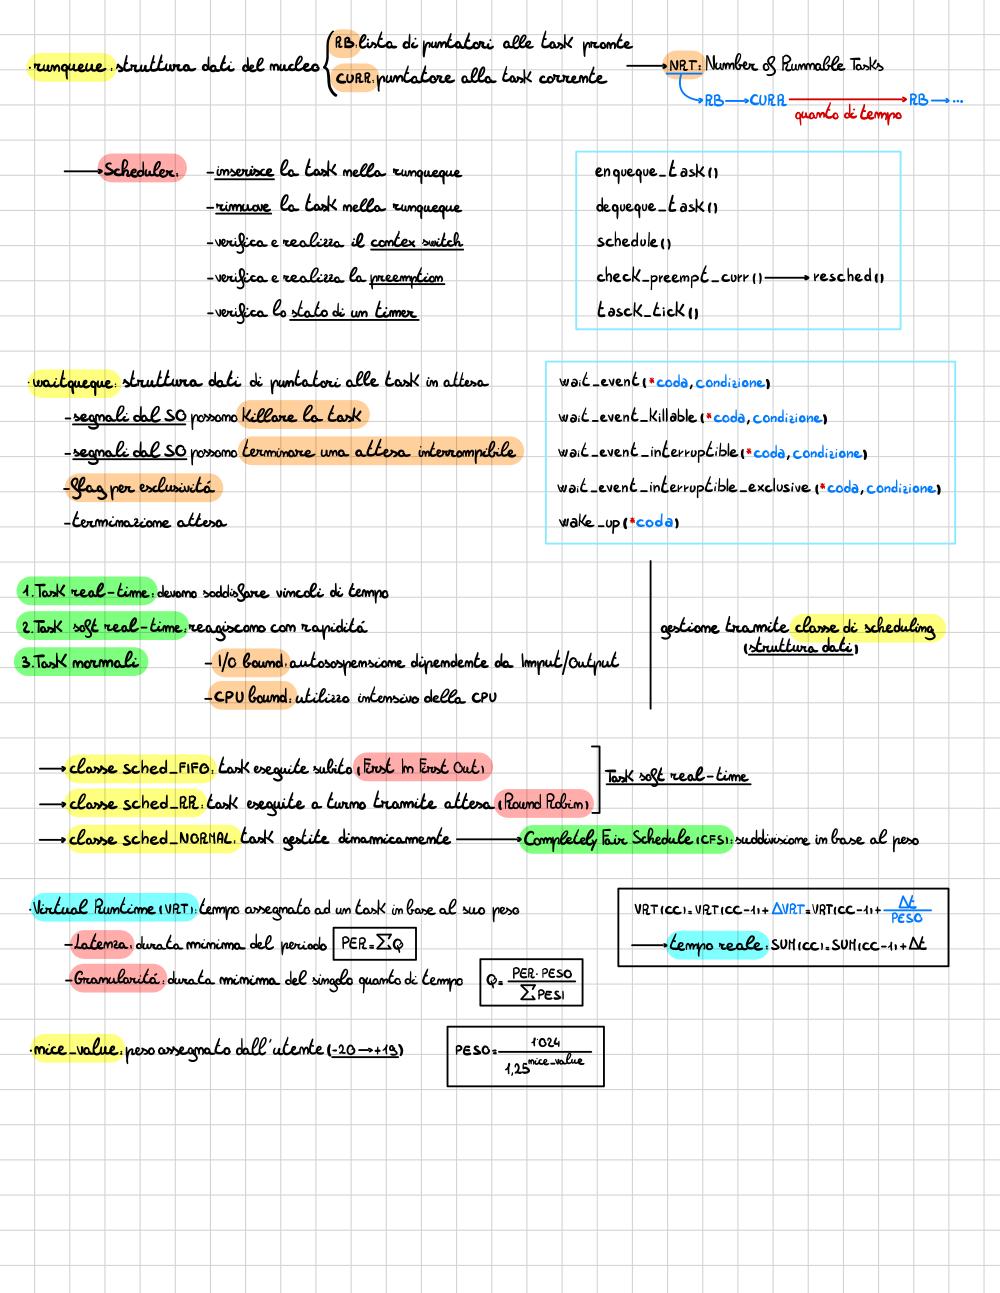 ·runqueue: struttura dati del nucleo
RB: lista di puntatori alle task pronte
CURR: puntatore alla task corrente
→ NRT: Number of Runnable Tasks
RB → CURR → RB → ...
quanto di tempo
→ Scheduler: -inserisce la task nella runqueque
-rimuove la task nella runqueque
-verifica e realizza il contex switch
-verifica e realizza la preemption
-verifica lo stato di un timer
enqueque_task()
dequeque_task()
schedule()
check_preempt_curr() → resched()
tasck_tick()
·waitqueque: struttura dati di puntatori alle task in attesa
-segnali dal SO possono killare la task
-segnali dal SO possono terminare una attesa interrompibile
-flag per esclusivitá
-terminazione attesa
wait_event(*coda, condizione)
wait_event_killable(*coda, condizione)
wait_event_interruptible(*coda, condizione)
wait_event_interruptible_exclusive(*coda, condizione)
wake_up(*coda)
1. Task real-time: devono soddisfare vincoli di tempo
2. Task soft real-time: reagiscono con rapiditá
3. Task normali - I/O bound: autosospensione dipendente da Imput/Output
-CPU bound: utilizzo intensivo della CPU
gestione tramite classe di scheduling
(struttura dati)
→ classe sched_FIFO: task eseguite subito (First In First Out)
→ classe sched_RR: task eseguite a turno tramite attesa (Round Robin)
Task soft real-time
→ classe sched_NORMAL: task gestite dinamicamente → Completely Fair Schedule (CFS): suddivisione in base al peso
·Virtual Runtime (VRT): tempo assegnato ad un task in base al suo peso
-Latenza: durata minima del periodo PER=∑Q
-Granularitá: durata minima del singlo quanto di tempo Q= PER·PESO / ∑PESI
VRT(CC)=VRT(CC-1)+ΔVRT=VRT(CC-1)+ Δt / PESO
→ tempo reale: SUM(CC)=SUM(CC-1)+Δt
·nice_value: peso assegnato dall'utente (-20→+19) PESO= 1024 / 1,25^nice_value